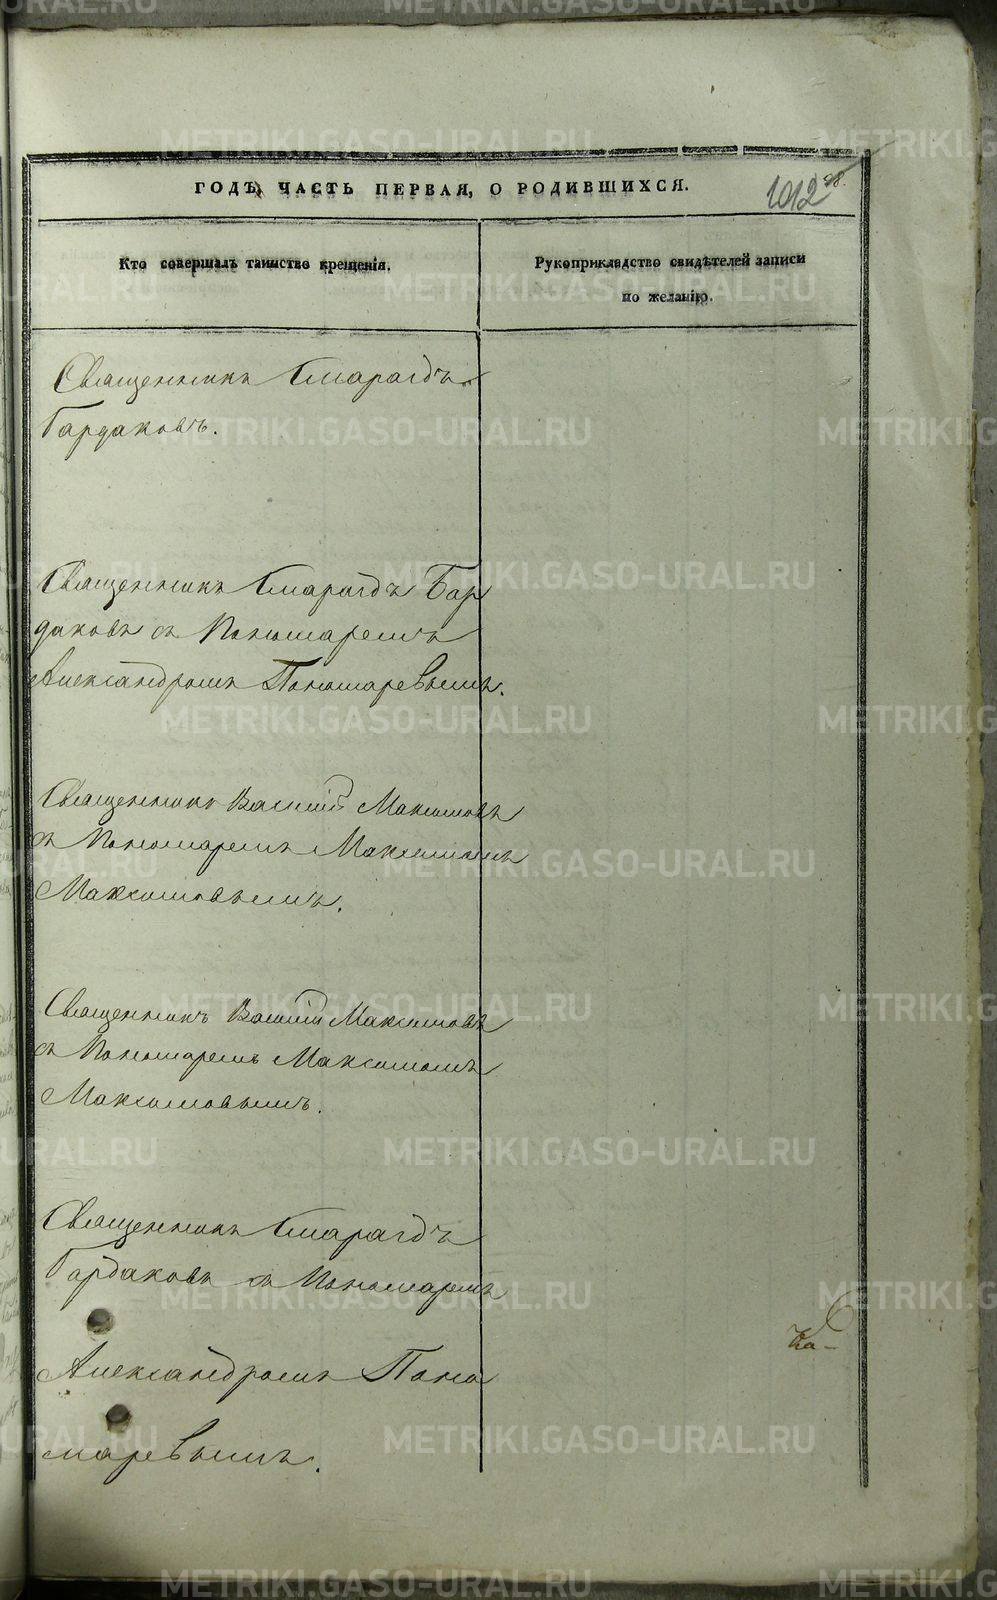 ГОДЪ, ЧАСТЬ ПЕРВАЯ, О РОДИВШИХСЯ.
1012
Кто совершалъ таинство крещенія.
Рукоприкладство свидѣтелей записи
по желанію.
Священникъ Смарагдъ
Бардаковъ.
Священникъ Смарагдъ Бар
даковъ съ Пономаремъ
Александромъ Пономаревымъ.
Священникъ Василій Максимовъ
съ Пономаремъ Максимомъ
Максимовымъ.
Священникъ Василій Максимовъ
съ Пономаремъ Максимомъ
Максимовымъ.
Священникъ Смарагдъ
Бардаковъ съ Пономаремъ
Александромъ Поно
маревымъ.
METRIKI.GASO-URAL.RU